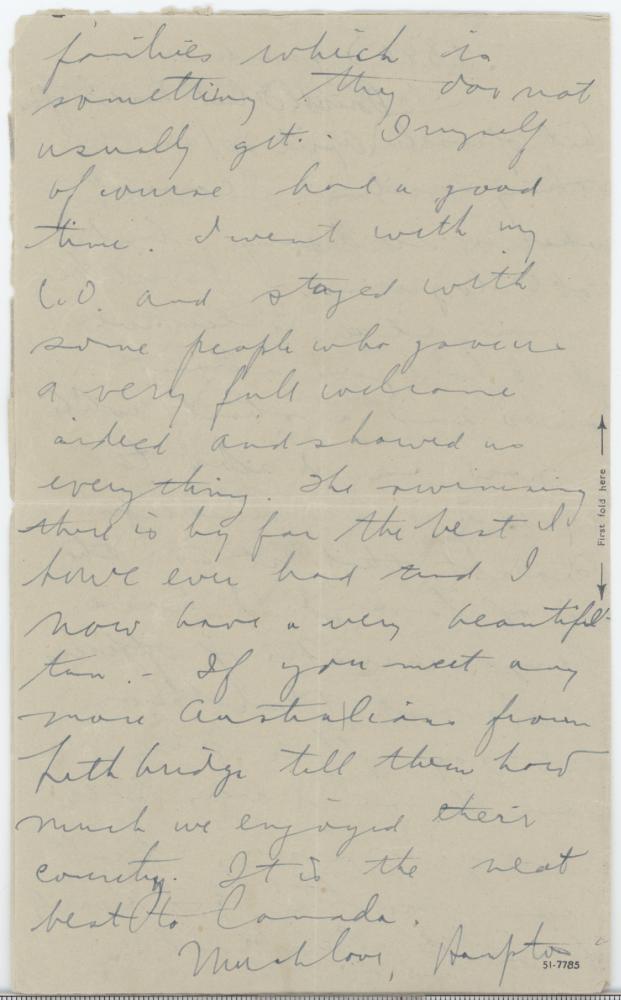 families which is
something they do not
usually get. - I myself
of course had a good
time. I went with my
C.O. and stayed with
some people who gave us
a very full welcome
indeed and showed us
everything. The swimming
there is by far the best I
have ever had and I
now have a very beautiful
tan. - If you meet any
more Australians from
Lethbridge tell them how
much we enjoyed their
country. It is the next
best to Canada.
Much love, Hampton
First fold here
51-7785